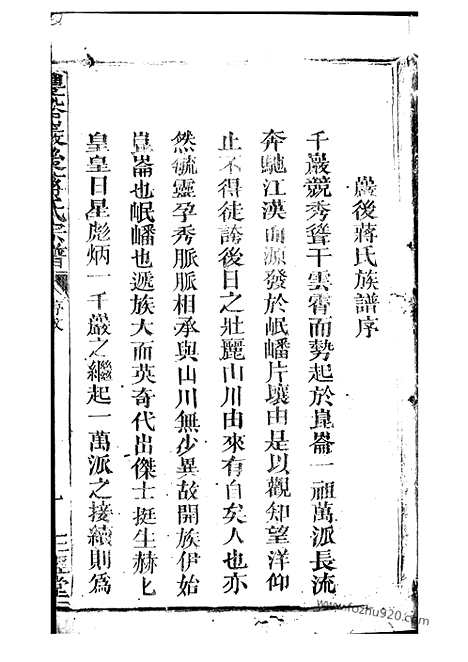 巖後蔣氏族譜序
千巖競秀聳干雲霄而勢起於崑崙一祖萬派長流
奔馳江漢而源發於岷嶓片壤由是以觀知望洋仰
止不得徒誇後日之壯麗山川由來有自矣人也亦
然毓靈孕秀脈脈相承與山川無少異故開族伊始
崑崙也岷嶓也遞族大而英奇代出傑士挺生赫匕
皇皇日星彪炳一千巖之繼起一萬派之接續則爲
巖後蔣氏宗譜
序文
一
三徑堂
www.fozhu920.com